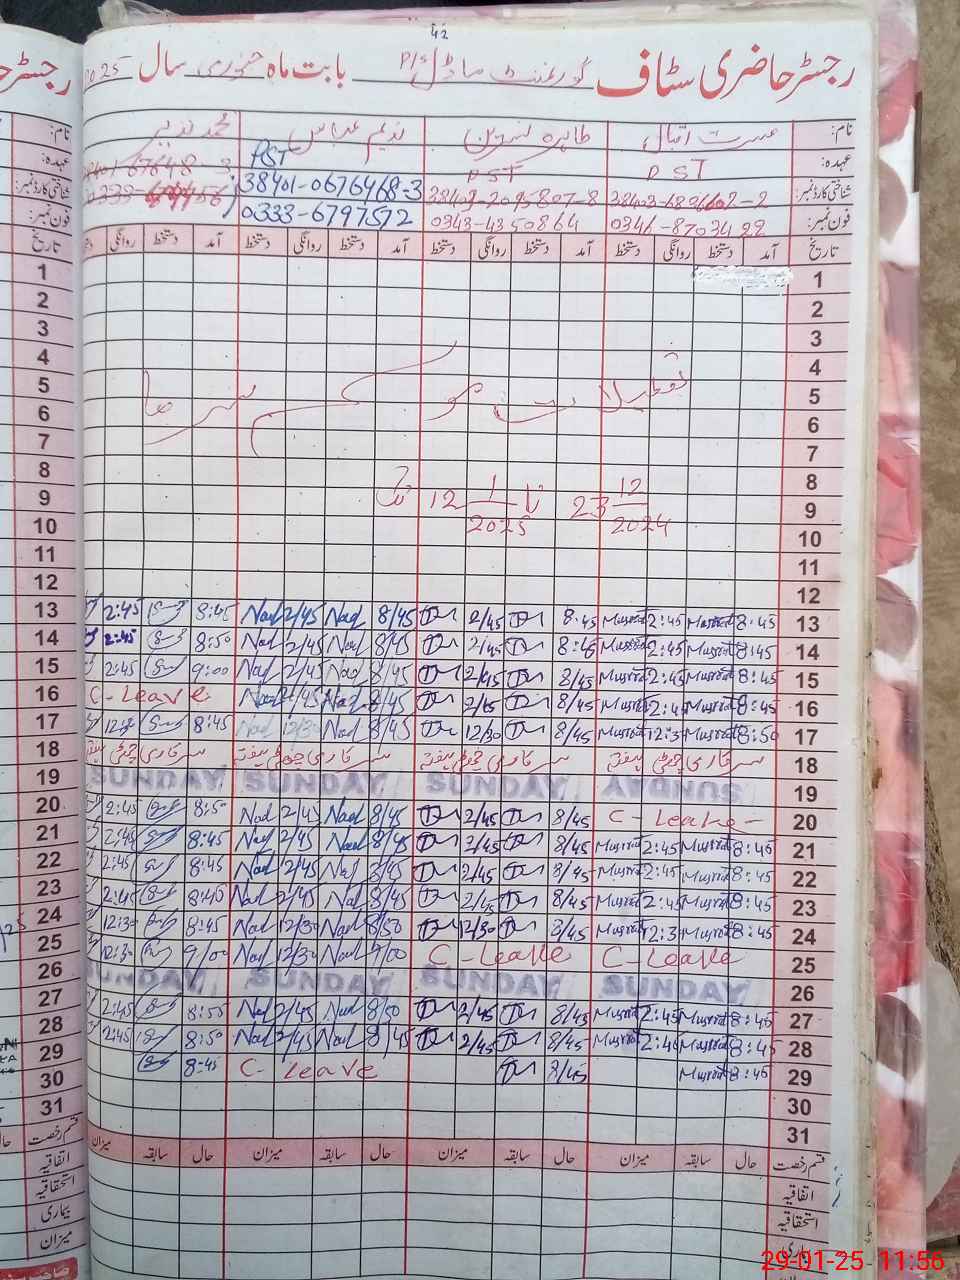 42
رجسٹر حاضری سٹاف گورنمنٹ ماڈل P/S بابت ماہ جنوری سال 2025
نام: مسرت اقبال طاہرہ نسرین ندیم عباس محمد نذیر
عہدہ: PST PST PST
شناختی کارڈ نمبر: 38402-2095807-8 38401-0676468-3
فون نمبر: 0346-8703422 0343-4350864 0333-6797572
تاریخ آمد دستخط روانگی دستخط آمد دستخط روانگی دستخط آمد دستخط روانگی دستخط آمد دستخط روانگی
1
2
3
4
5 تعطیلات موسم سرما
6
7
8
9 23 12/2024 تا 12 1/2025 تک
10
11
12
13 8:45 Musarrat 2:45 Musarrat 8:45 2/45 8/45 Nad 2/45 Nad 8:45 2:45
14 8:45 Musarrat 2:45 Musarrat 8:45 2/45 8/45 Nad 2/45 Nad 8:50 2:45
15 8:45 Musarrat 2:45 Musarrat 8/45 2/45 8/45 Nad 2/45 Nad 9:00 2:45
16 8:45 Musarrat 2:45 Musarrat 8/45 2/45 8/45 Nad 2/45 Nad C-Leave
17 8:50 Musarrat 12:3 Musarrat 8/45 12/30 8/45 Nad 12/30 Nad 8:45 12:30
18 سرکاری چھٹی ہفتہ سرکاری چھٹی ہفتہ سرکاری چھٹی ہفتہ سرکاری چھٹی ہفتہ
19 SUNDAY SUNDAY SUNDAY SUNDAY
20 C-Leave- 8/45 2/45 8/45 Nad 2/45 Nad 8:50 2:45
21 8:45 Musarrat 2:45 Musarrat 8/45 2/45 8/45 Nad 2/45 Nad 8:45 2:45
22 8:45 Musarrat 2:45 Musarrat 8/45 2/45 8/45 Nad 2/45 Nad 8:45 2:45
23 8:45 Musarrat 2:45 Musarrat 8/45 2/45 8/45 Nad 2/45 Nad 8:40 2:45
24 8:45 Musarrat 12:3 Musarrat 8/45 12/30 8/50 Nad 12/30 Nad 8:45 12:30
25 C-Leave C-Leave 9/00 Nad 12/30 Nad 9/00 12:30
26 SUNDAY SUNDAY SUNDAY SUNDAY
27 8:45 Musarrat 2:45 Musarrat 8/45 2/45 8/50 Nad 2/45 Nad 8:55 2:45
28 8:45 Musarrat 2:45 Musarrat 8/45 2/45 8/45 Nad 2/45 Nad 8:50 2:45
29 8:45 Musarrat 8/45 C-Leave 8:45
30
31
قسم رخصت حال سابقہ میزان حال سابقہ میزان حال سابقہ میزان حال سابقہ میزان
اتفاقیہ
استحقاقیہ
بیماری
29-01-25 11:56